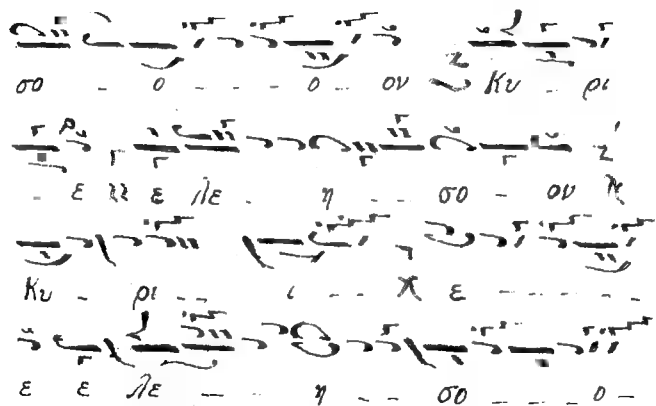 σο - ο - - - - ο - - ου Κυ - - ρι
- - ε ε λε - η σο - ου
Κυ - ρι - - ι - - ε - - - - - -
ε ε λε - - - - η - - σο - - - - ο -